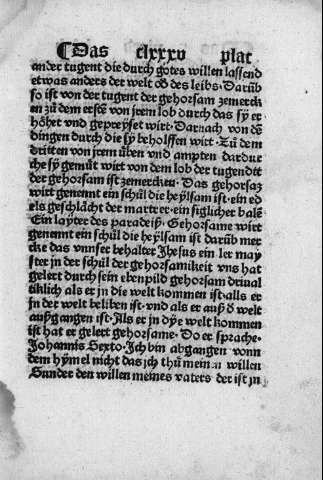 ¶Das clxxxv plat
ander tugent die durch gotes willen lassend
etwas anders der welt oð des leibs. Darūb
so ist von der tugent der gehorsam zemerck
en zů dem erstē von jrem lob durch das sy er
höhet vnd gepreyset wirt. Darnach von dē
dingen durch die sy beholffen wirt. Zů dem
dritten von jrem üben vnd ampten dardur
che sy gemůt wirt von dem lob der tugendtt
der gehorsam ist zemercken. Das gehorsaʒ
wirt genennt ein schůl die heylsam ist. ein ed
els geschlächt der martrer. ein siglicher balē
Ein layter des paradeiß. Gehorsame wirt
genennt ein schůl die heylsam ist darūb mer
cke das vnnser behalter Jhesus ein ler may
ster in der schůl der gehorsamikeit vns hat
gelert durch sein ebenpild gehorsam driual
tiklich als er in die welt kommen ist. alls er
jn der welt beliben ist. vnd als er auß ð welt
außgangen ist. Als er jn dye welt kommen
ist hat er gelert gehorsame. Do er sprache.
Johannis Sexto. Ich bin abgangen vonn
dem hymel nicht das jch thů meinen willen
Sunder den willen meines vaters der ist jn